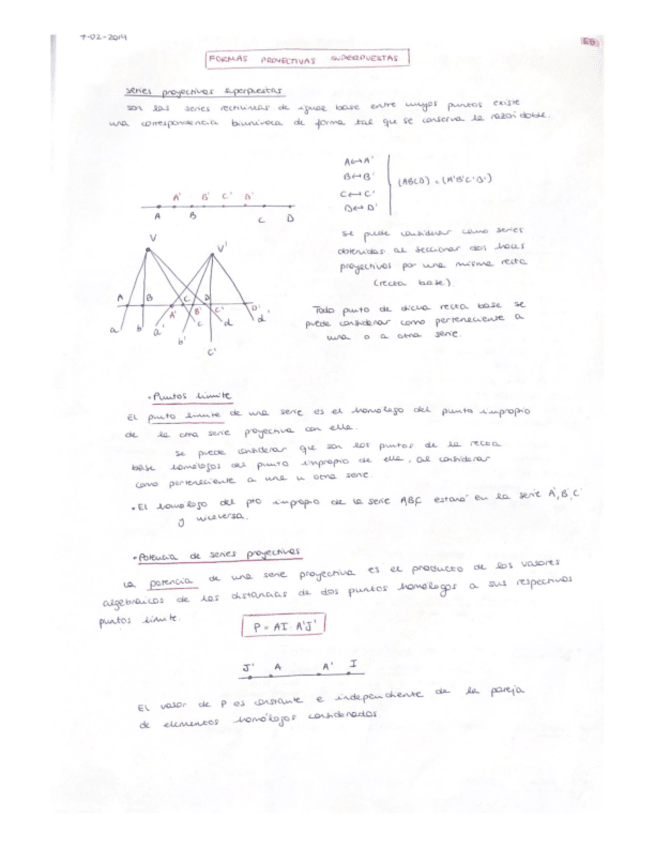 7-02-2014
FORMAS PROYECTIVAS SUPERPUESTAS
series proyectivas superpuestas
son las series rectilíneas de igual base entre cuyos puntos existe
una correspondencia biunívoca de forma tal que se conserva la razón doble.
A' B' C' D'
A B C D
A↔A'
B↔B'
C↔C'
D↔D'
(ABCD) = (A'B'C'D')
se puede considerar como series
obtenidas al seccionar dos haces
proyectivos por una misma recta
(recta base)
Todo punto de dicha recta base se
puede considerar como perteneciente a
una o a otra serie.
V V'
A B A' C B' D C' D'
a b a' b' c d c' d'
• Puntos límite
El punto límite de una serie es el homólogo del punto impropio
de la otra serie proyectiva con ella.
se puede considerar que son los puntos de la recta
base homólogos del punto impropio de ella, al considerar
como perteneciente a una u otra serie.
• El homólogo del pto impropio de la serie ABC estará en la serie A', B', C'
y viceversa.
• Potencia de series proyectivas
La potencia de una serie proyectiva es el producto de los valores
algebraicos de las distancias de dos puntos homólogos a sus respectivos
puntos límite.
P = AI · A'J'
J' A A' I
El valor de P es constante e independiente de la pareja
de elementos homólogos considerados.